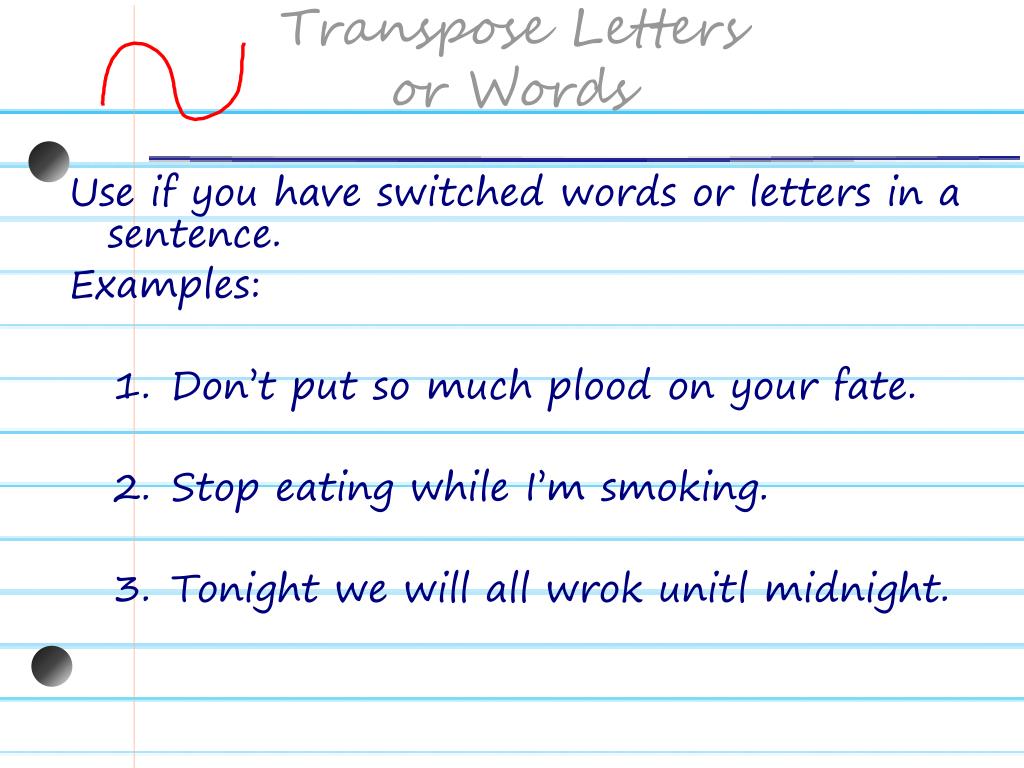 Transpose Letters
or Words
Use if you have switched words or letters in a
sentence.
Examples:
1. Don’t put so much plood on your fate.
2. Stop eating while I’m smoking.
3. Tonight we will all wrok unitl midnight.